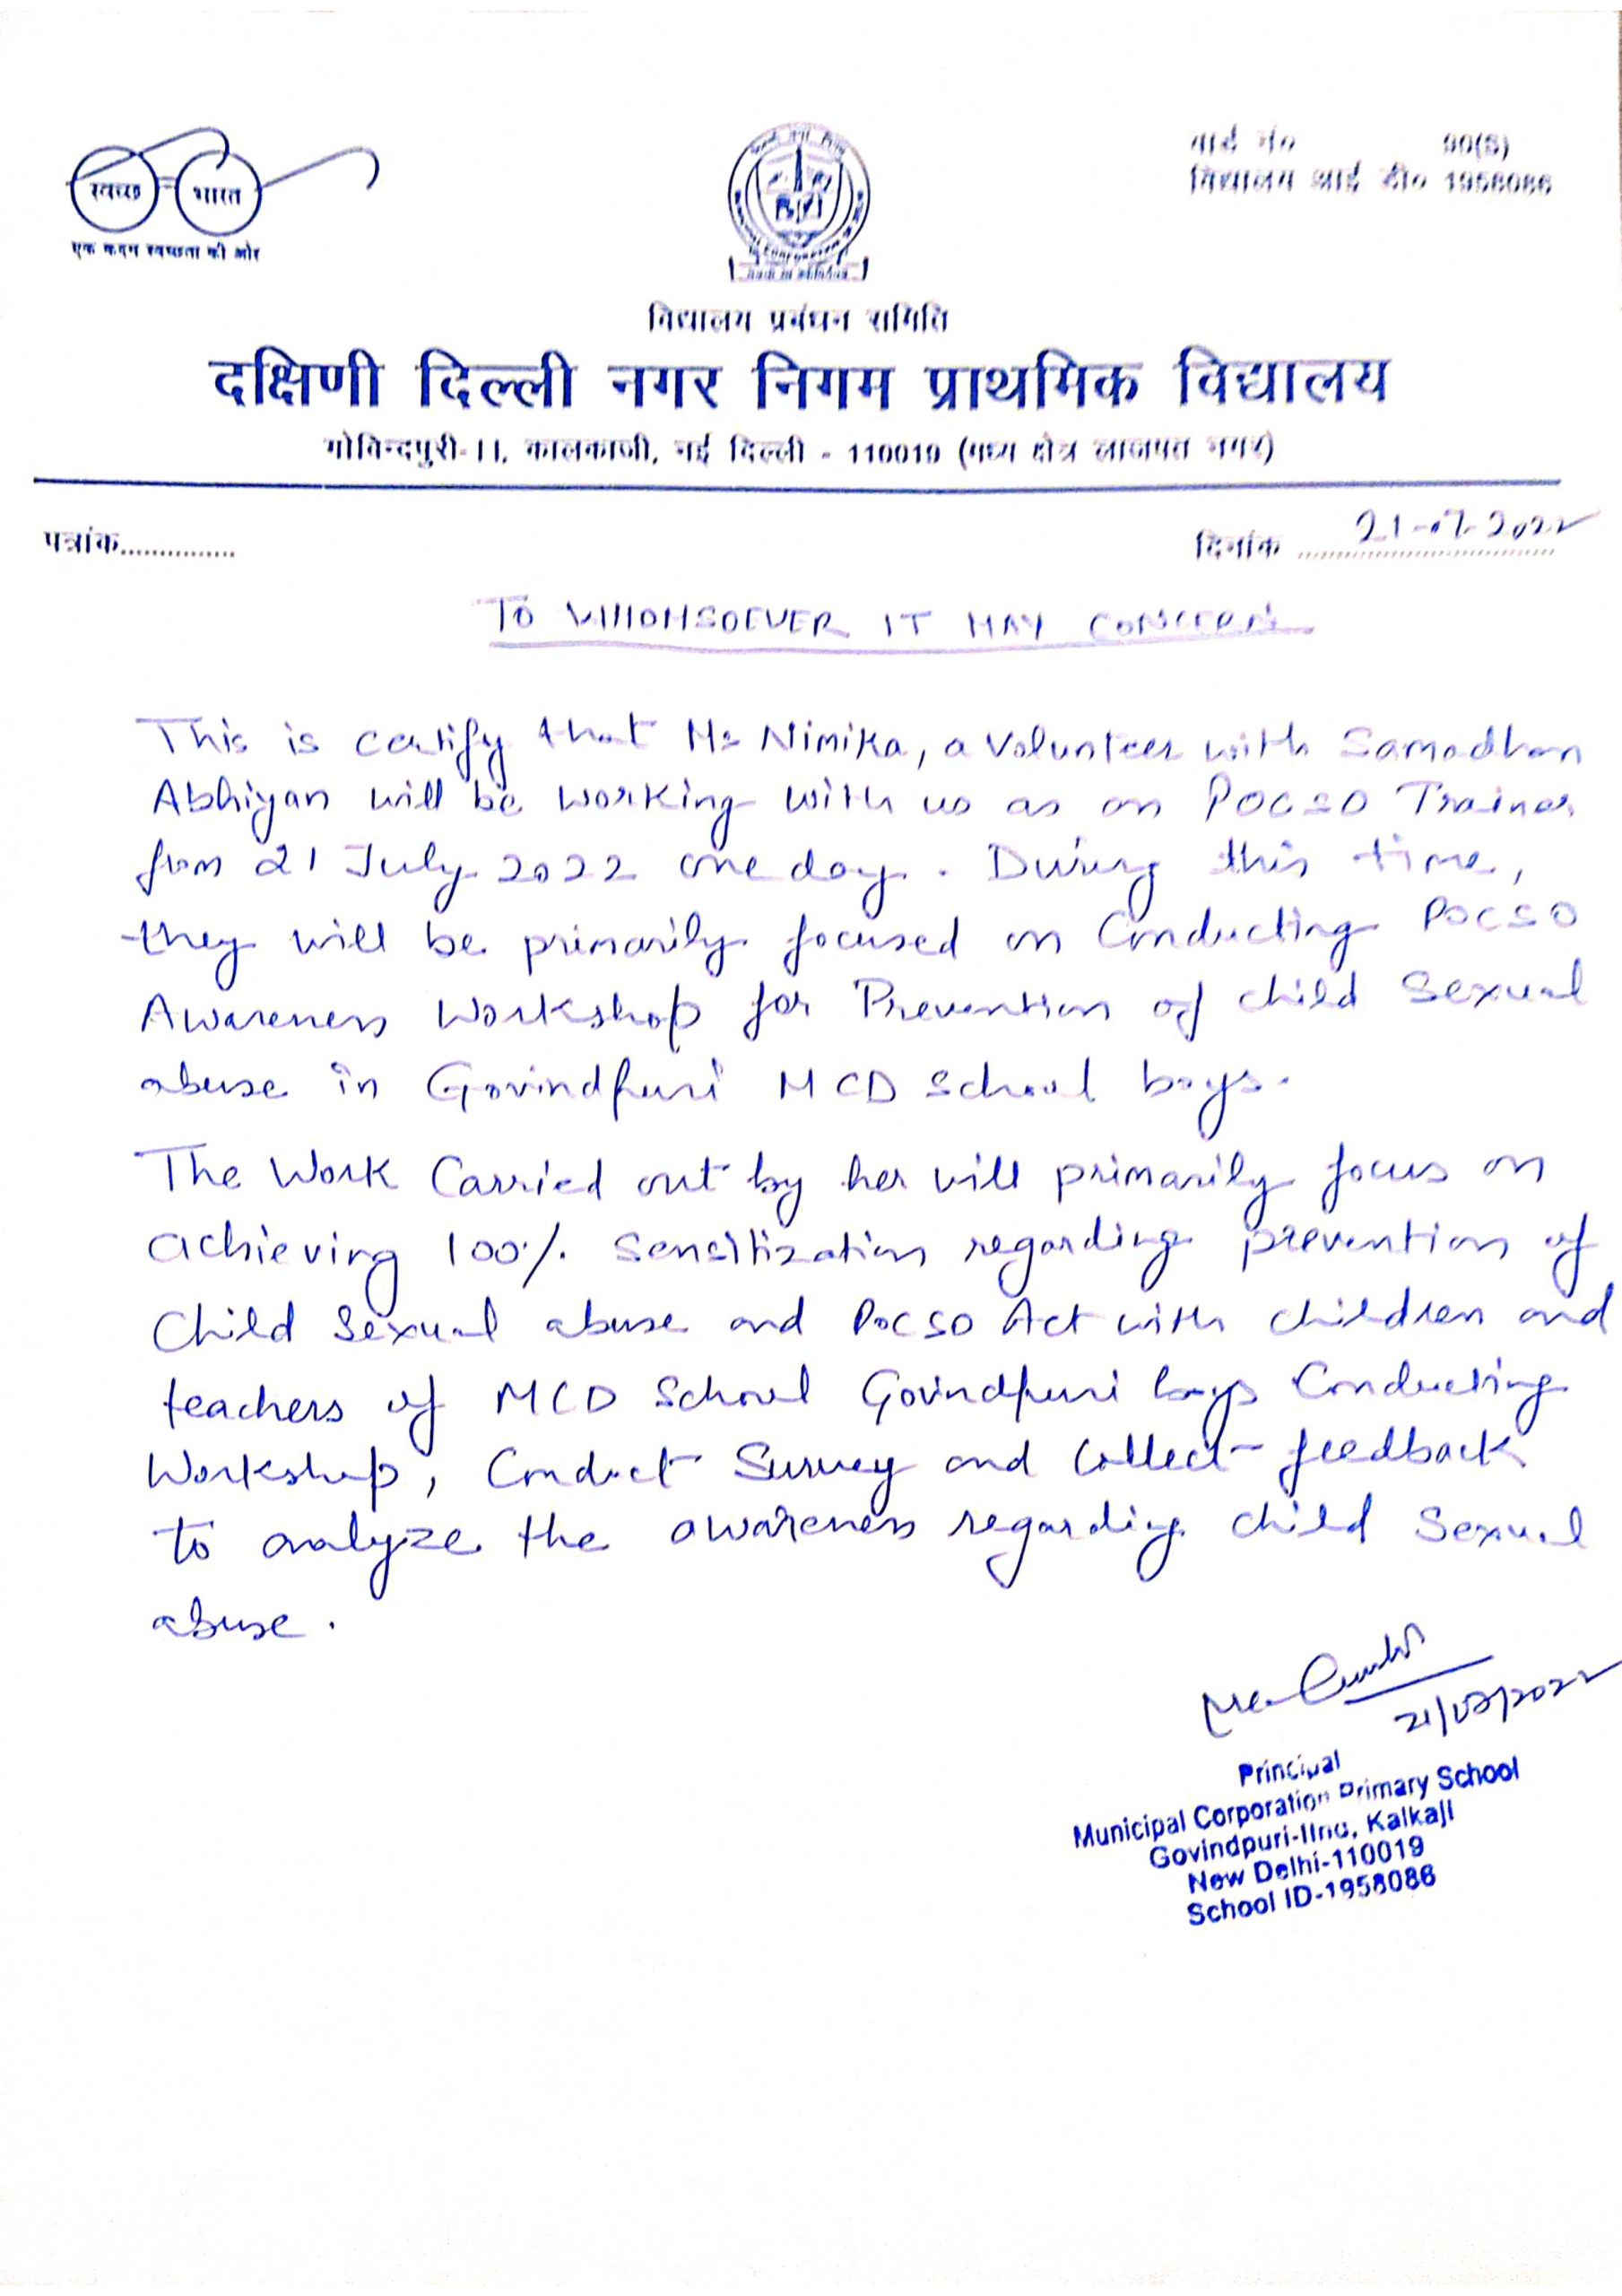 स्वच्छ भारत
एक कदम स्वच्छता की ओर
वार्ड नं० 90(S)
विद्यालय आई डी० 1958086
विद्यालय प्रबंधन समिति
दक्षिणी दिल्ली नगर निगम प्राथमिक विद्यालय
गोविन्दपुरी-II, कालकाजी, नई दिल्ली - 110019 (मध्य क्षेत्र लाजपत नगर)
पत्रांक..............
दिनांक 21-07-2022
TO WHOMSOEVER IT MAY CONCERN
This is certify that Ms Nimika, a Volunteer with Samadhan
Abhiyan will be working with us as an POCSO Trainer
from 21 July 2022 one day. During this time,
they will be primarily focused on Conducting POCSO
Awareness Workshop for Prevention of child Sexual
abuse in Govindpuri MCD School boys.
The Work Carried out by her will primarily focus on
achieving 100% Sensitization regarding prevention of
Child Sexual abuse and POCSO Act with children and
teachers of MCD School Govindpuri boys Conducting
Workshop, Conduct Survey and Collect feedback
to analyze the awareness regarding child Sexual
abuse.
21/07/2022
Principal
Municipal Corporation Primary School
Govindpuri-IInd, Kalkaji
New Delhi-110019
School ID-1958086